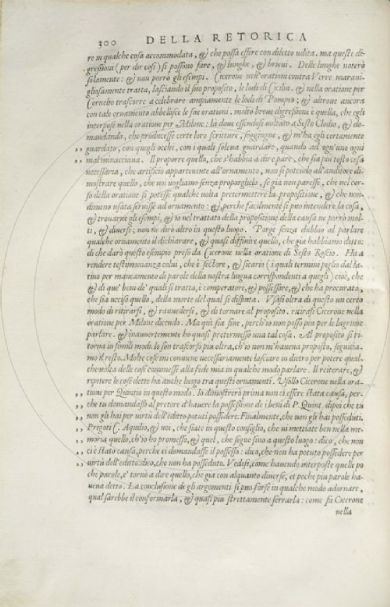 300 DELLA RETORICA
re in qualche cosa accommodata, & che possa essere con diletto udita. ma queste di-
gressioni (per dir così) si possono fare, & lunghe, & brevi. Delle lunghe noterò
solamente: & non porrò gli esempi. Cicerone nell'oratione contra Verre maravi-
gliosamente tratta, lasciando il suo proposito, le lodi di Cicilia. & nella oratione per
Cornelio trascorre a celebrare ampiamente le lodi di Pompeo; & altrove ancora
con tale ornamento abbellisce le sue orationi. molto breve digressione è quella, che egli
interpose nella oratione per Milone: la dove essendosi voltato a Sesto Clodio, & di-
mandando, che producesse certe loro scritture, soggiugne, & m'ha egli certamente
guardato, con quegli occhi, con i quali soleva guardare, quando ad ogn'uno ogni
mal minacciava. Il proporre quello, che s'habbia a dire pare, che sia più tosto cosa
necessaria, che artificio appartenente all'ornamento, non si potendo all'anditore di-
mostrare quello, che noi vogliamo senza proporglielo, se già non paresse, che nel cor-
so della oratione si potesse qualche volta pretermettere la propositione, & che non
dimeno usata servisse ad ornamento: & perche facilmente si può intendere la cosa,
& trovarne gli esempi, & io nel trattato della propositione della causa ne porrò mol-
ti, & diversi; non ne dirò altro in questo luogo. Porge senza dubbio al parlare
qualche ornamento il dichiarare, & quasi diffinire quello, che già habbiamo detto:
di che darò questo esempio preso da Cicerone nella oratione di Sesto Roscio. Ha à
rendere testimonianza colui, che è settore, & sicario (i quali termini piglio dal la-
tino per mancamento di parole della nostra lingua corrispondenti a questi) cioè, che
& di que' beni de' quali si tratta, è comperatore, & possessore, & che ha procurato,
che sia ucciso quello, della morte del qual si disputa. Usasi oltra di questo un certo
modo di ritirarsi, & ravvedersi, & di tornare al proposito. ritirasi Cicerone nella
oratione per Milone dicendo. Ma qui sia fine, perch'io non posso più per le lagrime
parlare. & inavvertemente ho quasi pretermesso una tal cosa. Al proposito si ri-
torna in simili modi. Io son trascorso più oltra, ch'io non m'haveva proposto, seguitia-
mo il resto. Molte cose mi conviene necessariamente lasciare in dietro per potere qual-
che volta delle cose commesse alla fede mia in qualche modo parlare. Il reiterare, &
ripetere le cose dette ha anche luogo tra questi ornamenti. Usollo Cicerone nella ora-
tione per Quintio in questo modo. Io dimostrerò prima non ci essere stata causa, per-
che tu dimandassi al pretore d'havere la possessione de i beni di P. Quint. dipoi che tu
non gli hai per virtù dell'editto potuti possedere. Finalmente, che non gli hai posseduti.
Prigoti C. Aquilio, & voi, che siate in questo consiglio, che vi mettiate ben nella me-
moria quello, ch'io ho promesso, & quel, che segue sino a questo luogo: dico, che non
ci è stata causa, perche ei dimandasse il possesso: dico, che non ha potuto possedere per
virtù dell'editto: dico, che non ha posseduto. Vedesi, come havendo interposte quelle po
che parole, e' tornò a dire quello, che già con alquanto diverse, et poche più parole ha-
veva detto. La conclusione de gli argomenti si può forse in qualche modo adornare,
qual sarebbe il conformarla, & quasi più strettamente serrarla: come fa Cicerone
nella